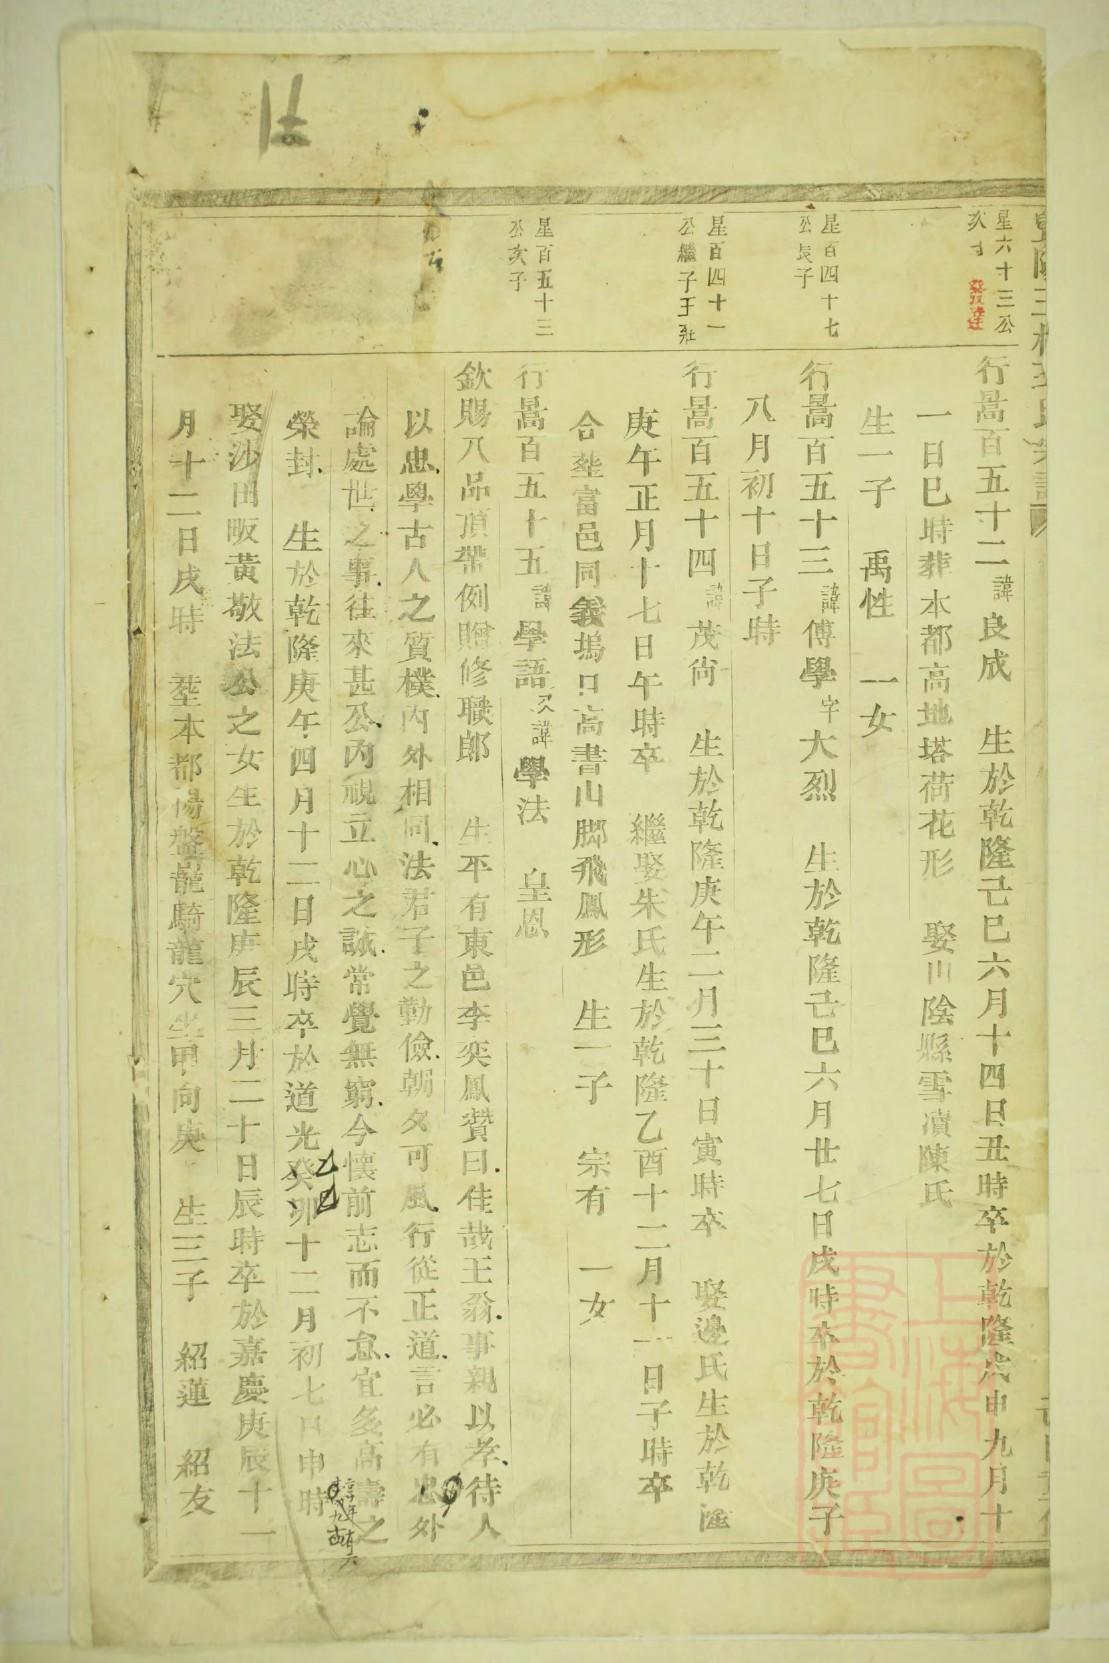 星六十三公
次子
發達
行暠百五十二 諱良成 生於乾隆己巳六月十四日丑時卒於乾隆戊申九月十
一日巳時葬本都高地塔荷花形 娶山陰縣雪瀆陳氏
生一子 禹性 一女
星百四十七
公長子
行暠百五十三 諱傳學 字大烈 生於乾隆己巳六月廿七日戌時卒於乾隆庚子
八月初十日子時
星百四十一
公繼子王壯
行暠百五十四 諱茂尙 生於乾隆庚午二月三十日寅時卒 娶邊氏生於乾隆
庚午正月十七日午時卒 繼娶朱氏生於乾隆乙酉十二月十一日子時卒
合塟富邑同義塢口高書山脚飛鳳形 生一子 宗有 一女
星百五十三
公次子
行暠百五十五 諱學語 又諱學法 皇恩
欽賜八品頂帶例贈修職郎 生平有東邑李奕鳳贊曰佳哉王翁事親以孝待人
以忠學古人之質樸內外相同法君子之勤儉朝夕可風行從正道言必有忠外
論處世之事往來甚公內視立心之誠常覺無窮今懷前志而不怠宜多高壽之
榮封 生於乾隆庚午四月十二日戌時卒於道光癸卯十二月初七日申時
娶沙田畈黃敬法公之女生於乾隆庚辰三月二十日辰時卒於嘉慶庚辰十一
月十二日戌時 塟本都楊盤龍騎龍穴坐甲向庚 生三子 紹蓮 紹友